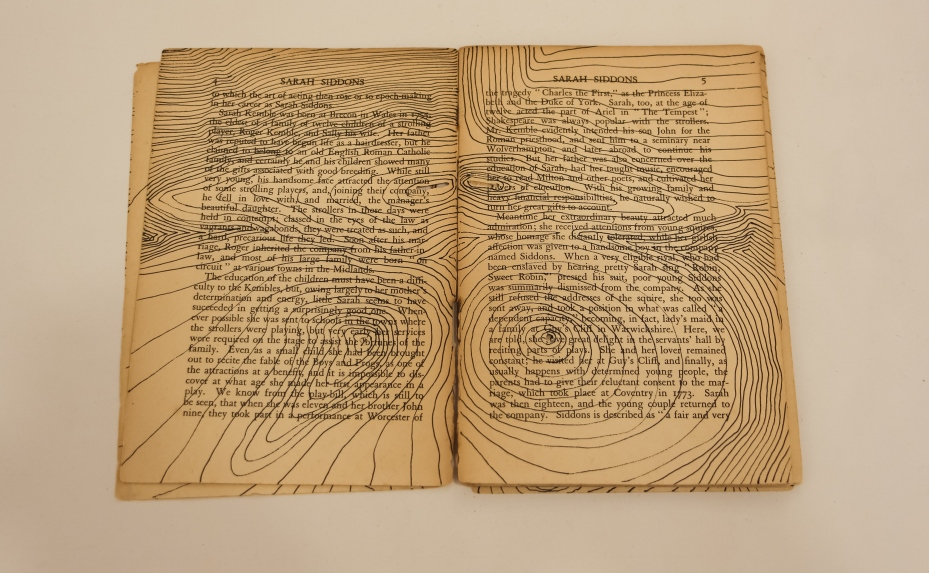 4 SARAH SIDDONS
to which the art of acting then rose or so epoch-making
in her career as Sarah Siddons.
Sarah Kemble was born at Brecon in Wales in 1755,
the eldest of a family of twelve children of a strolling
player, Roger Kemble, and Sally his wife. Her father
was reputed to have begun life as a hairdresser, but he
claimed to belong to an old English Roman Catholic
family, and certainly he and his children showed many
of the gifts associated with good breeding. While still
very young, his handsome face attracted the attention
of some strolling players, and, joining their company,
he fell in love with, and married, the manager's
beautiful daughter. The strollers in those days were
held in contempt; classed in the eyes of the law as
vagrants and vagabonds, they were treated as such, and
a hard, precarious life they led. Soon after his mar-
riage, Roger inherited the company from his father-in-
law, and most of his large family were born "on
circuit" at various towns in the Midlands.
The education of the children must have been a diffi-
culty to the Kembles, but, owing largely to her mother's
determination and energy, little Sarah seems to have
succeeded in getting a surprisingly good one. When-
ever possible she was sent to schools in the town where
the strollers were playing, but very early her services
were required on the stage to assist the fortunes of the
family. Even as a small child she had been brought
out to recite the fable of the Boys and Frogs, as one of
the attractions at a benefit, and it is impossible to dis-
cover at what age she made her first appearance in a
play. We know from the play-bill, which is still to
be seen, that when she was eleven and her brother John
nine, they took part in a performance at Worcester of
SARAH SIDDONS 5
the tragedy "Charles the First," as the Princess Eliza-
beth and the Duke of York. Sarah, too, at the age of
twelve acted the part of Ariel in "The Tempest";
Shakespeare was always popular with the strollers.
Mr. Kemble evidently intended his son John for the
Roman priesthood, and sent him to a seminary near
Wolverhampton, and later abroad, to continue his
studies. But her father was also concerned over the
education of Sarah, had her taught music, encouraged
her to read Milton and other poets, and cultivated her
powers of elocution. With his growing family and
heavy financial responsibilities, he naturally wished to
turn her great gifts to account.
Meantime her extraordinary beauty attracted much
admiration; she received attentions from young squires,
whose homage she distantly tolerated, while her girlish
affection was given to a handsome boy in the company
named Siddons. When a very eligible rival, who had
been enslaved by hearing pretty Sarah sing "Robin,
Sweet Robin," pressed his suit, poor young Siddons
was summarily dismissed from the company. As she
still refused the addresses of the squire, she too was
sent away, and took a position in what was called "a
dependent capacity," becoming, in fact, lady's maid in
a family at Guy's Cliff in Warwickshire. Here, we
are told, she great delight in the servants' hall by
reciting parts of plays. She and her loved remained
constant; he visited her at Guy's Cliff, and finally, as
usually happens with determined young people, the
parents had to give their reluctant consent to the mar-
riage, which took place at Coventry in 1773. Sarah
was then eighteen, and the young couple returned to
the company. Siddons is described as "a fair and very